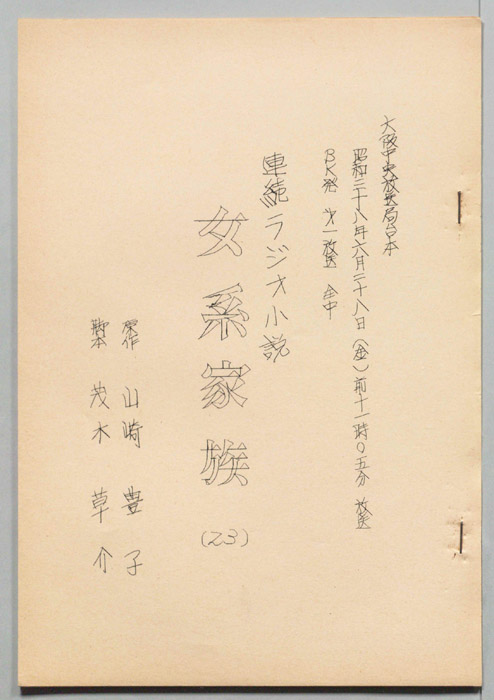 大阪中央放送局台本
昭和三十八年六月二十八日（金）前十一時〇五分 放送
BK発 才一放送 全中
連続ラジオ小説
女系家族
(23)
原作 山崎豊子
脚本 茂木草介